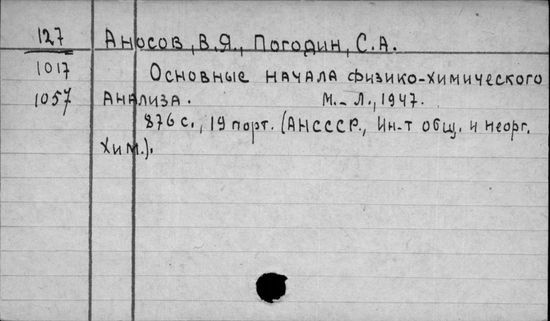 127 Аносов, В.Я., Погодин, С.А.
1017 Основные начала физико-химического
1057 анализа. М.-Л., 1947.
876 с., 19 порт. (АНСССР., Ин-т общ. и неорг.
Хим.).